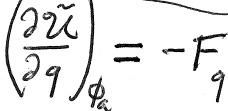 (∂Ũ/∂q)_ϕₐ = -F_q